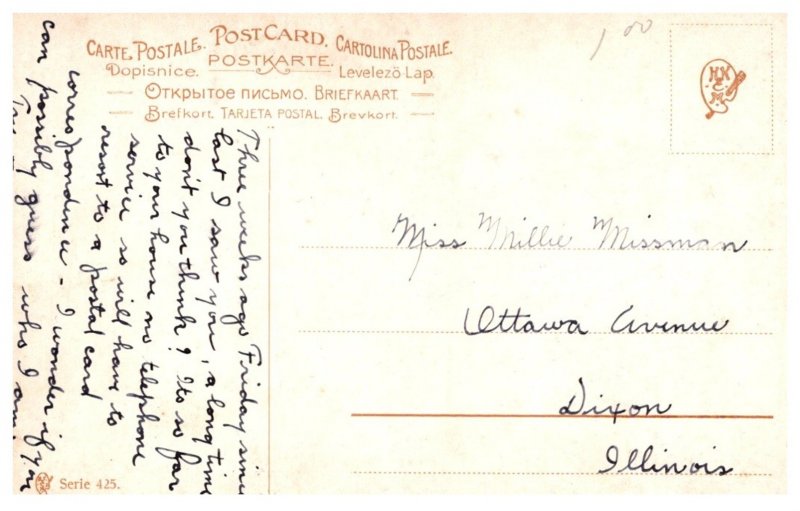 CARTE POSTALE. POSTCARD. CARTOLINA POSTALE.
Dopisnice. POSTKARTE. Levelező-Lap.
Открытое письмо. BRIEFKAART.
Brefkort. TARJETA POSTAL. Brevkort.
1 00
M.M.
E.
M.
Three weeks ago Friday since
last I saw you, a long time
don't you think? Its so far
to your house no telephone
service so will have to
resort to a postal card
correspondence - I wonder if you
can possibly guess who I am.
Miss Millie Missman
Ottawa Avenue
Dixon
Illinois
Serie 425.